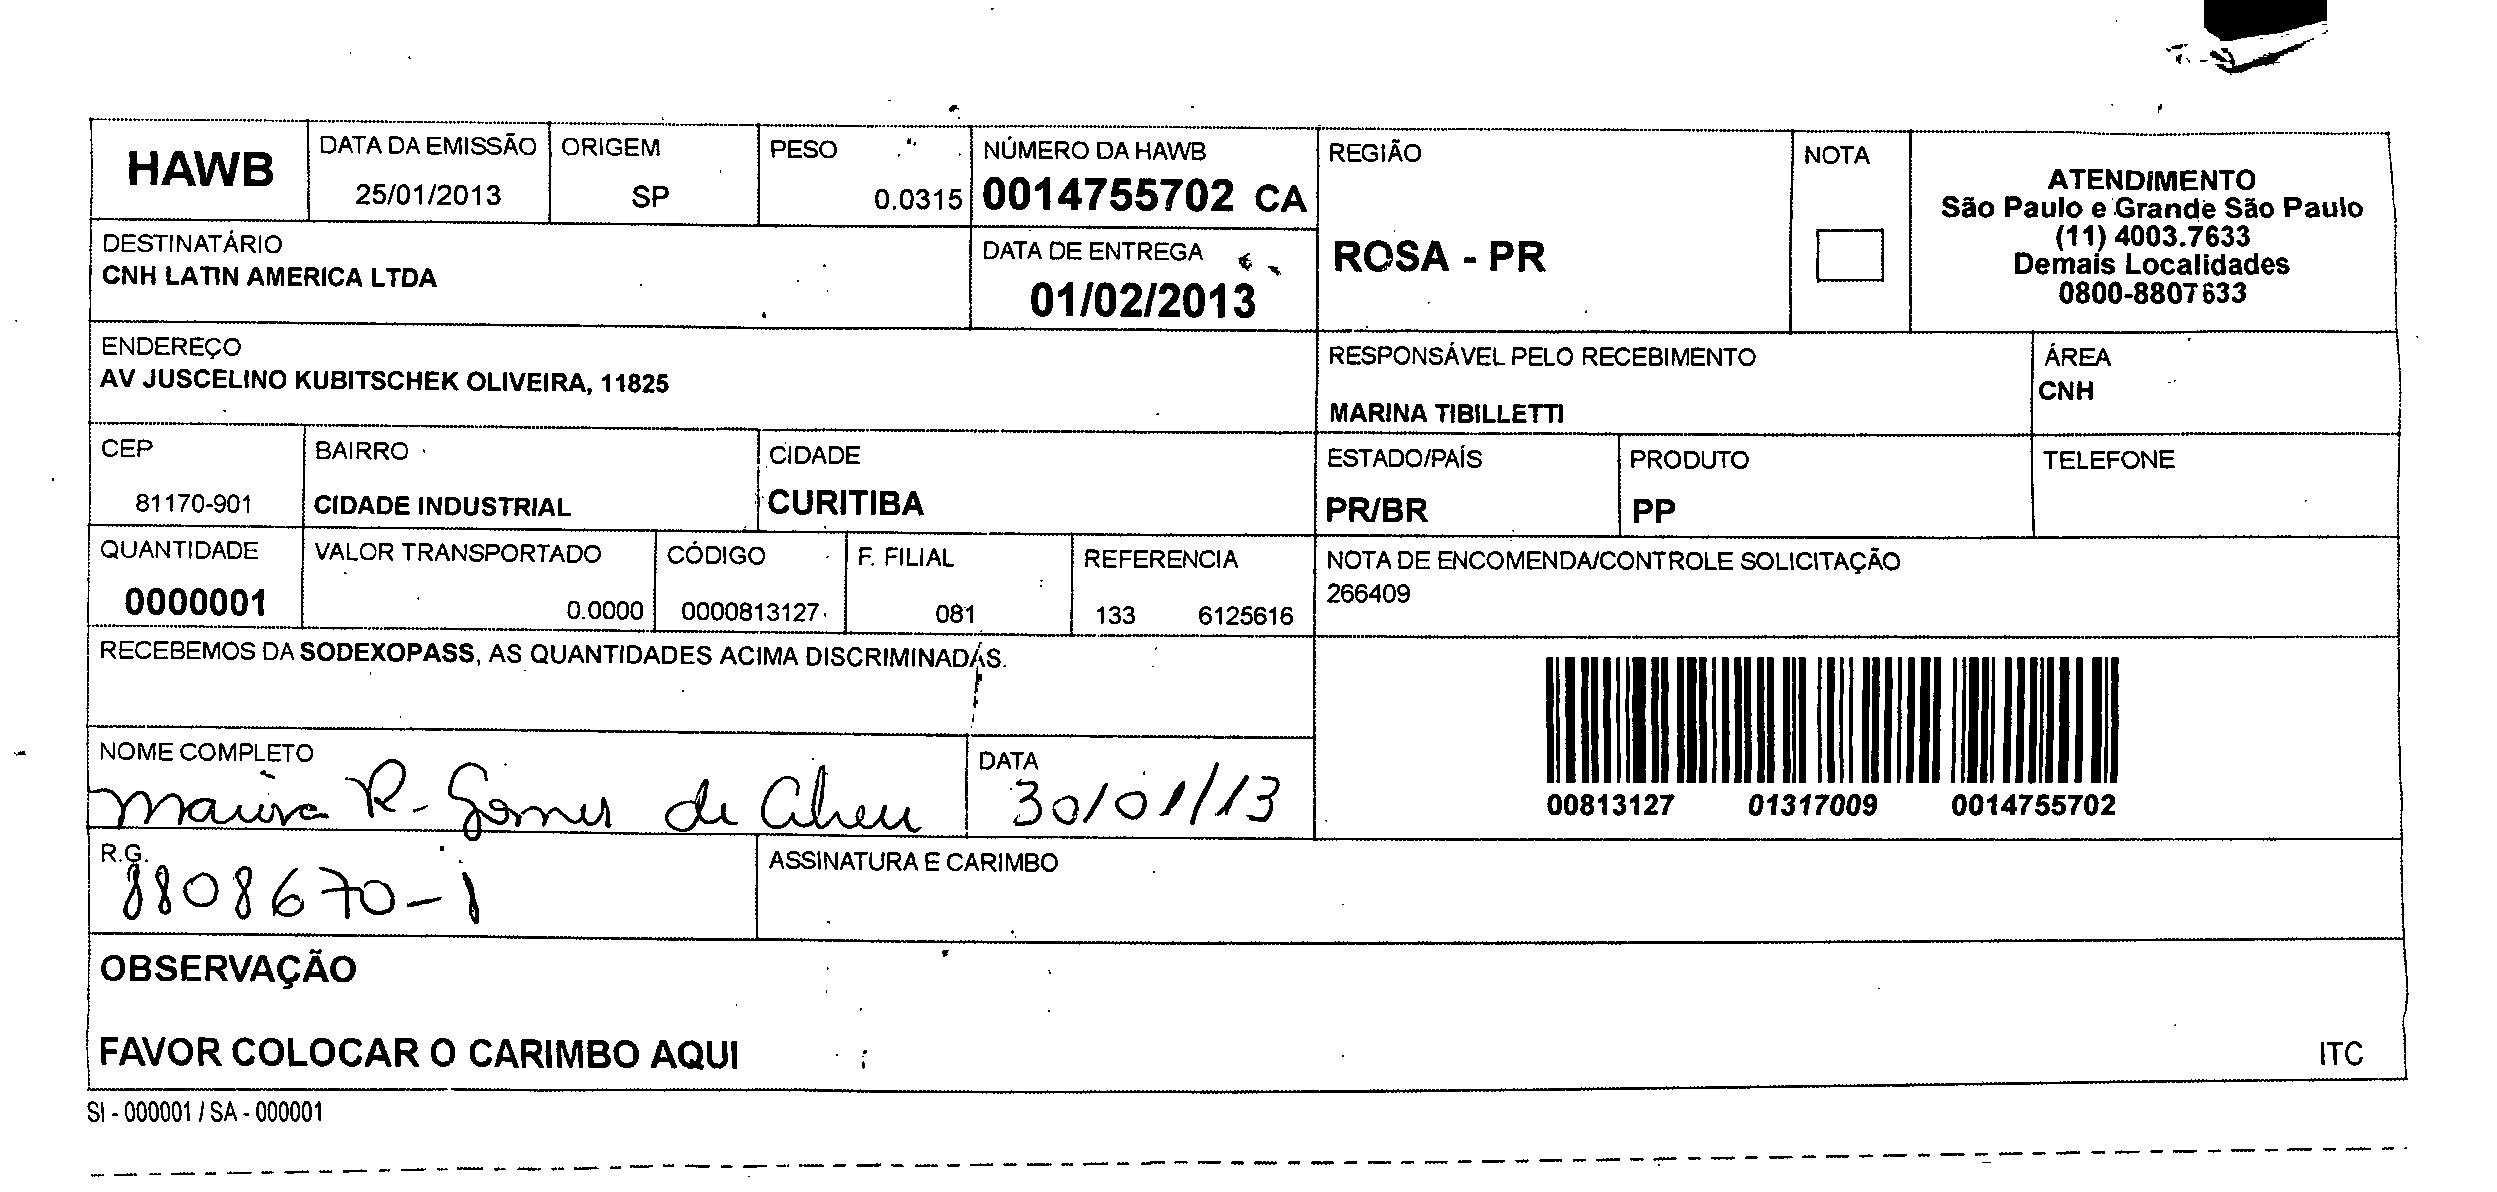 HAWB
DATA DA EMISSÃO
25/01/2013
ORIGEM
SP
PESO
0.0315
NÚMERO DA HAWB
0014755702 CA
REGIÃO
ROSA - PR
NOTA
ATENDIMENTO
São Paulo e Grande São Paulo
(11) 4003.7633
Demais Localidades
0800-8807633
DESTINATÁRIO
CNH LATIN AMERICA LTDA
DATA DE ENTREGA
01/02/2013
ENDEREÇO
AV JUSCELINO KUBITSCHEK OLIVEIRA, 11825
RESPONSÁVEL PELO RECEBIMENTO
MARINA TIBILLETTI
ÁREA
CNH
CEP
81170-901
BAIRRO
CIDADE INDUSTRIAL
CIDADE
CURITIBA
ESTADO/PAÍS
PR/BR
PRODUTO
PP
TELEFONE
QUANTIDADE
0000001
VALOR TRANSPORTADO
0.0000
CÓDIGO
0000813127
F. FILIAL
081
REFERENCIA
133 6125616
NOTA DE ENCOMENDA/CONTROLE SOLICITAÇÃO
266409
RECEBEMOS DA SODEXOPASS, AS QUANTIDADES ACIMA DISCRIMINADAS.
00813127 01317009 0014755702
NOME COMPLETO
R. Gomes de
DATA
30/01/13
R.G.
8808670-1
ASSINATURA E CARIMBO
OBSERVAÇÃO
FAVOR COLOCAR O CARIMBO AQUI
ITC
SI - 000001 / SA - 000001